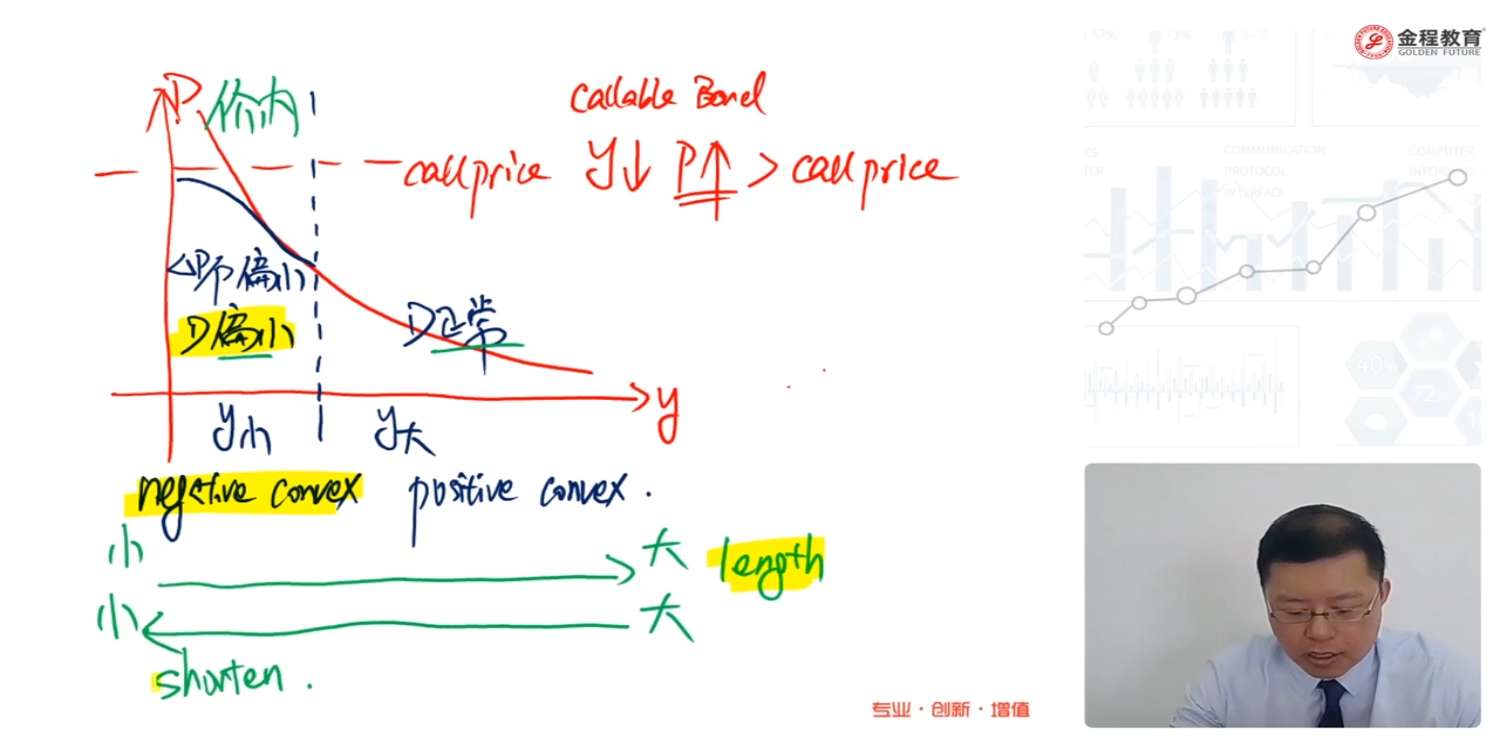 金程教育
GOLDEN FUTURE
P
价内
callable Bond
call price
y↓ P↑ > call price
△P偏小
D偏小
D正常
y
y小
y大
negative convex
positive convex.
小
大
length
小
大
shorten.
专业·创新·增值
COMMUNICATION
PROTOCOL
INTERFACE